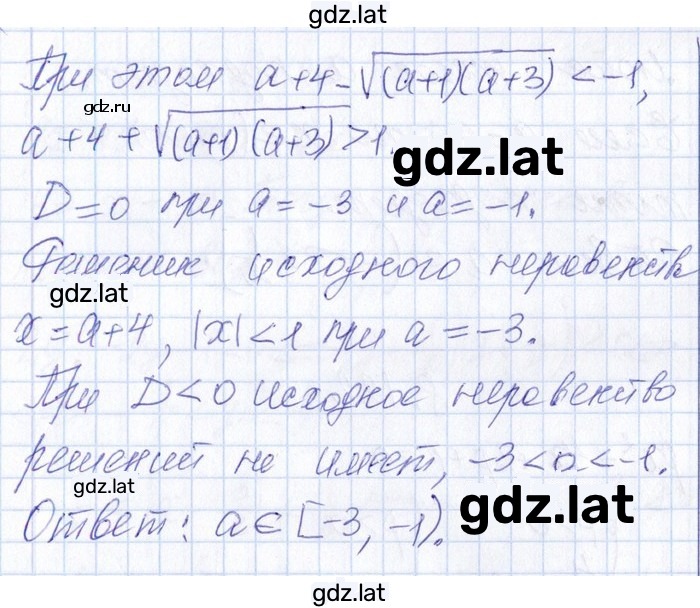 gdz.lat
При этом a+4-√(a+1)(a+3) < -1,
gdz.ru
a+4+√(a+1)(a+3) > 1.
gdz.lat
D=0 при a=-3 и a=-1.
исходного неравенств
gdz.lat
x=a+4, |x|<1 при a=-3.
При D<0 исходное неравенство
решений не имеет, -3<a<-1.
gdz.lat
gdz.lat
Ответ: a∈[-3, -1).
gdz.lat